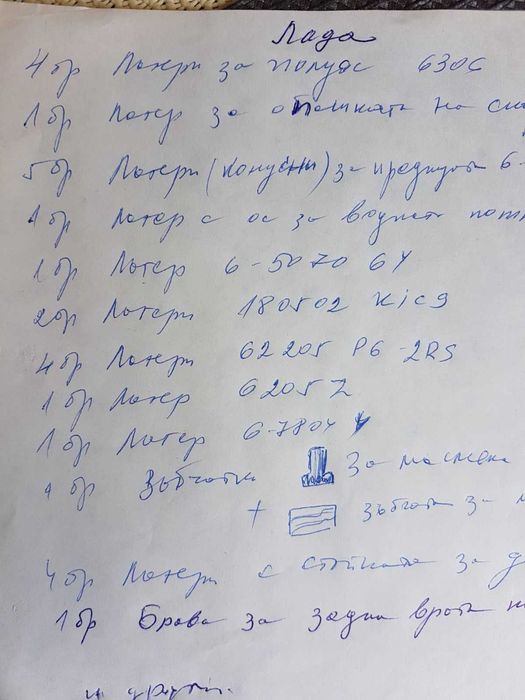 Лада
4 бр Лагери за полуос 6306
1 бр Лагер за опашката на
5 бр Лагери (конусни) за предница 6-
1 бр Лагер с ос за водната
1 бр Лагер 6-50706У
2 бр Лагери 180502 К1С9
4 бр Лагери 62205 Р6-2RS
1 бр Лагер 6205Z
1 бр Лагер 6-7804У
1 бр Зъбчатки за маслена
+ зъбчата за
4 бр Лагери с стойката за
1 бр Брава за задна врата
и други.